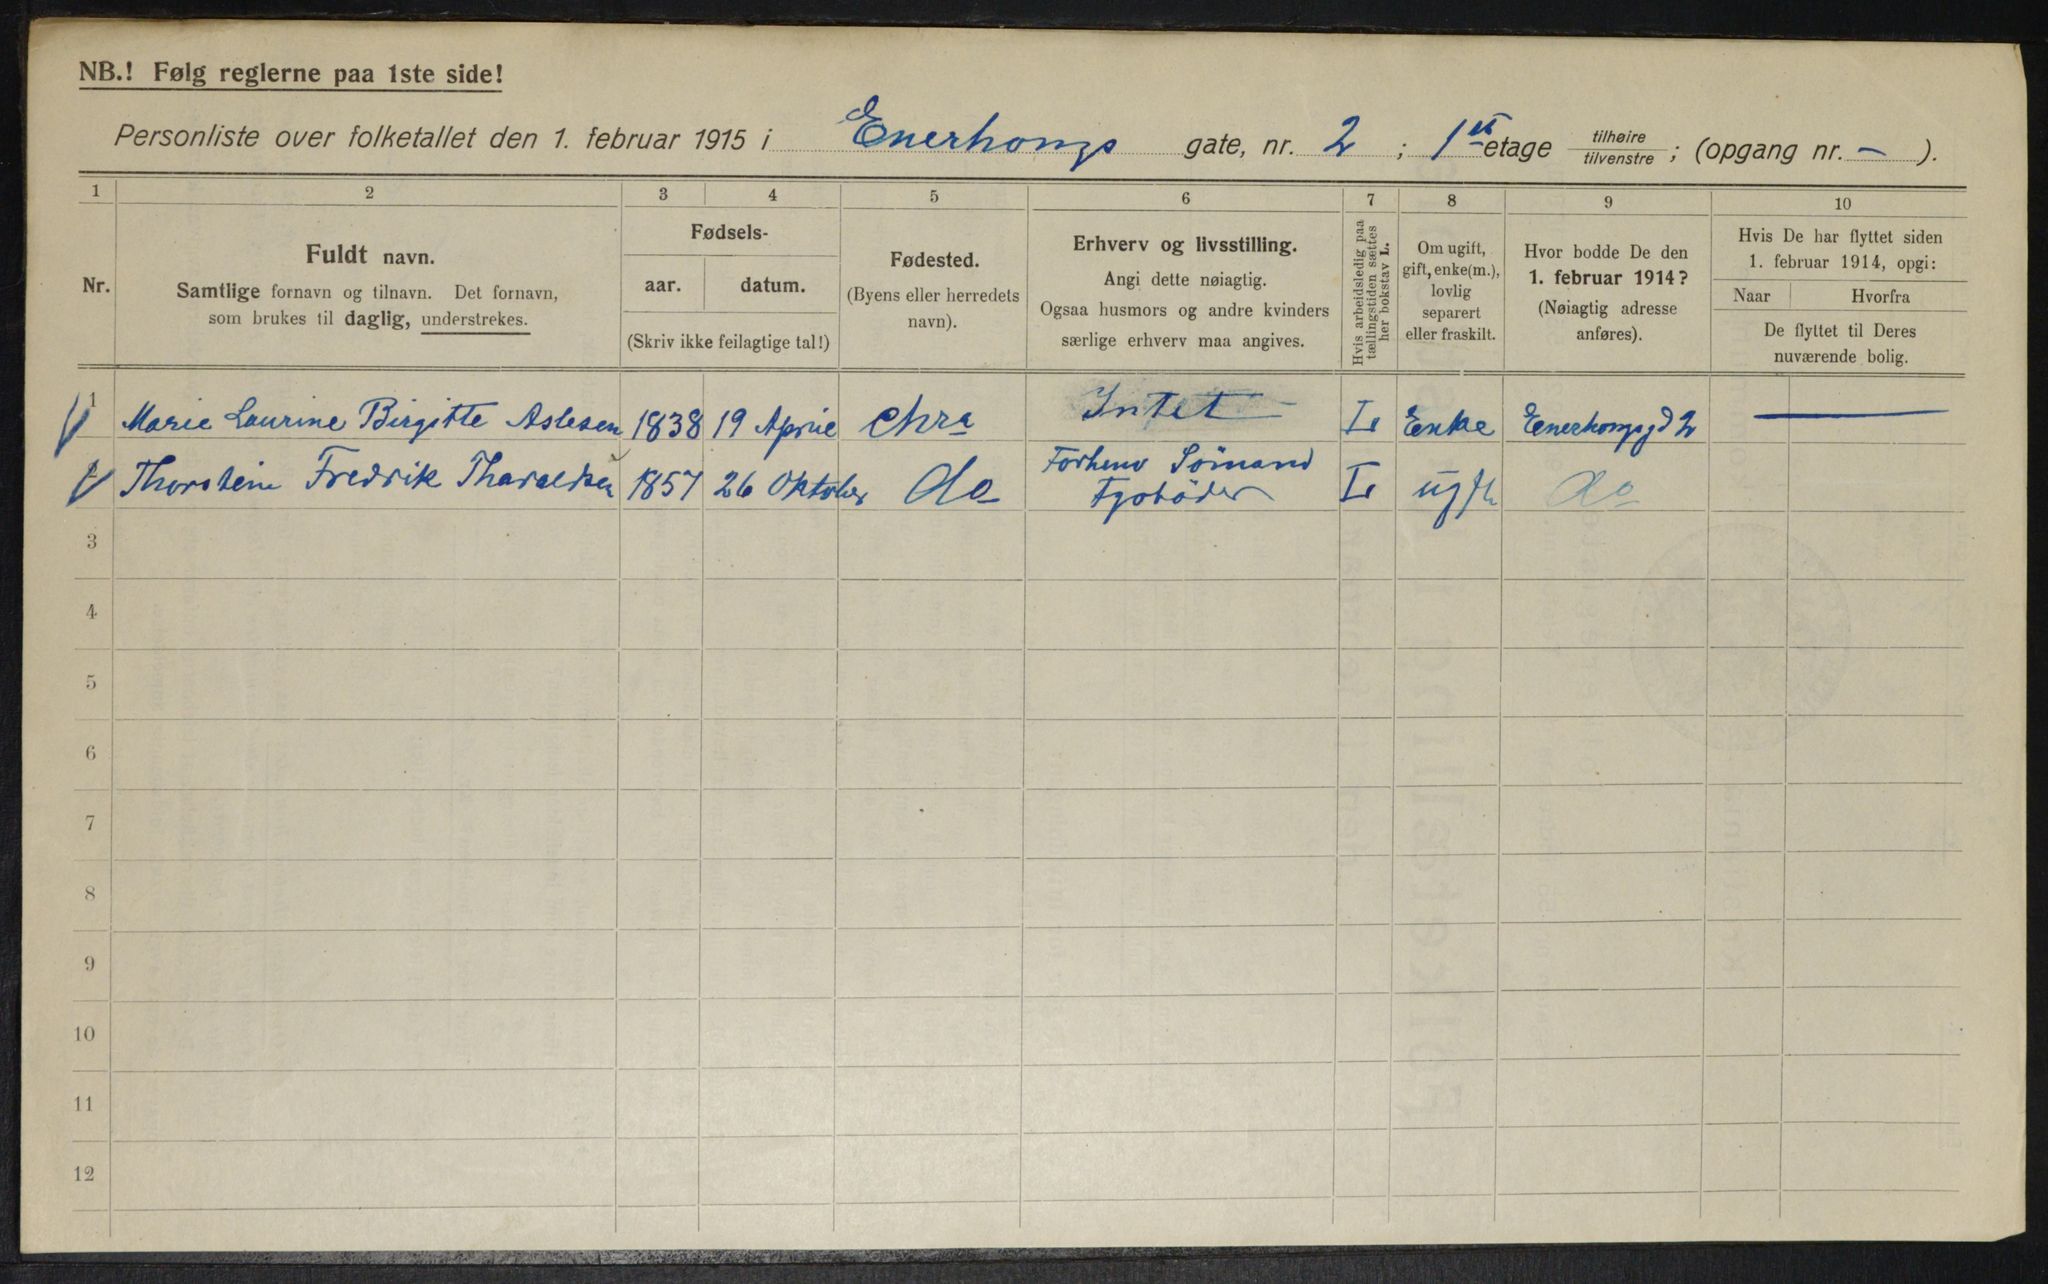 NB.! Følg reglerne paa 1ste side!
Personliste over folketallet den 1. februar 1915 i Enerhongs gate, nr. 2 ; 1st etage tilhøire / tilvenstre ; (opgang nr. – ).
1 2 3 4 5 6 7 8 9 10
Nr.
Fuldt navn.
Samtlige fornavn og tilnavn. Det fornavn,
som brukes til daglig, understrekes.
Fødsels-
aar. datum.
(Skriv ikke feilagtige tal!)
Fødested.
(Byens eller herredets
navn).
Erhverv og livsstilling.
Angi dette nøiagtig.
Ogsaa husmors og andre kvinders
særlige erhverv maa angives.
Hvis arbeidsledig paa
tællingstiden sættes
her bokstav L.
Om ugift,
gift, enke(m.),
lovlig
separert
eller fraskilt.
Hvor bodde De den
1. februar 1914?
(Nøiagtig adresse
anføres).
Hvis De har flyttet siden
1. februar 1914, opgi:
Naar Hvorfra
De flyttet til Deres
nuværende bolig.
1 Marie Laurine Birgitte Aslesen 1838 19 April Chra Intet L Enke Enerhongsgd 2 —
Thorstein Fredrik Tharaldsen 1857 26 Oktober do Forhenv Sömand
Fyrböder L ugft do
3
4
5
6
7
8
9
10
11
12